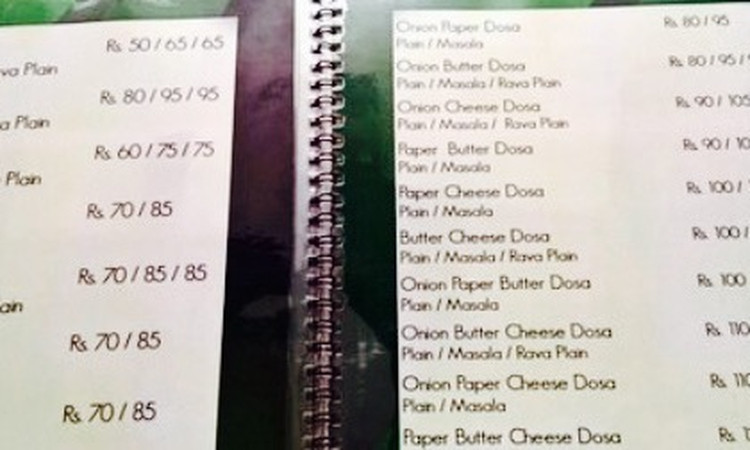 Rs. 50 / 65 / 65
Plain
Rs. 80 / 95 / 95
Plain
Rs. 60 / 75 / 75
Plain
Rs. 70 / 85
Rs. 70 / 85 / 85
Rs. 70 / 85
Rs. 70 / 85
Onion Paper Dosa Rs. 80 / 95
Plain / Masala
Onion Butter Dosa Rs. 80 / 95 /
Plain / Masala / Rava Plain
Onion Cheese Dosa Rs. 90 /
Plain / Masala / Rava Plain
Paper Butter Dosa Rs. 90 /
Plain / Masala
Paper Cheese Dosa Rs. 100 /
Plain / Masala
Butter Cheese Dosa Rs. 100 /
Plain / Masala / Rava Plain
Onion Paper Butter Dosa Rs. 100
Plain / Masala
Onion Butter Cheese Dosa Rs. 110
Plain / Masala / Rava Plain
Onion Paper Cheese Dosa Rs. 110
Plain / Masala
Paper Butter Cheese Dosa Rs.